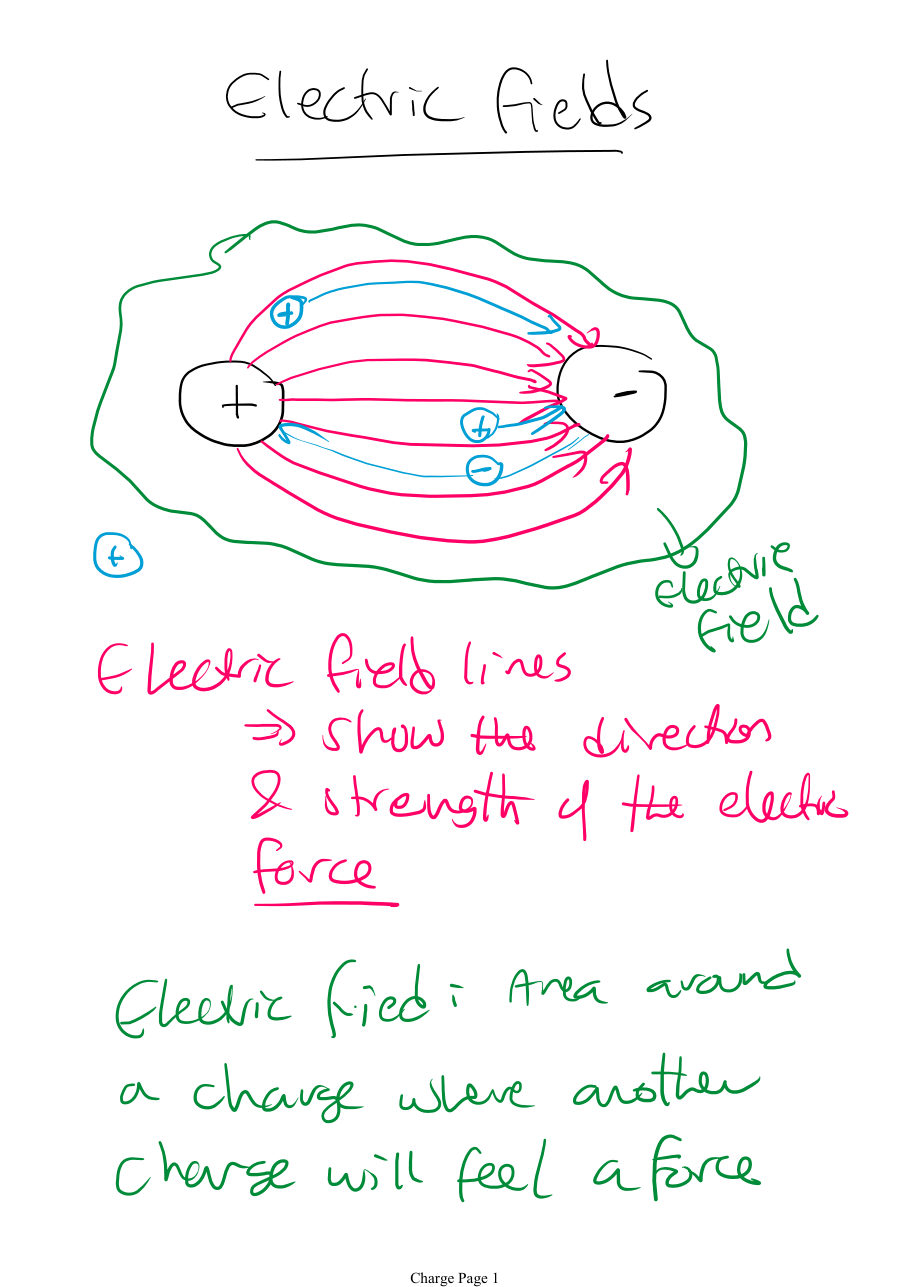 Electric Fields
+
+
-
+
-
+
Electric
Field
Electric field lines
⇒ show the direction
& strength of the electric
force
Electric fied : Area around
a charge where another
charge will feel a force
Charge Page 1